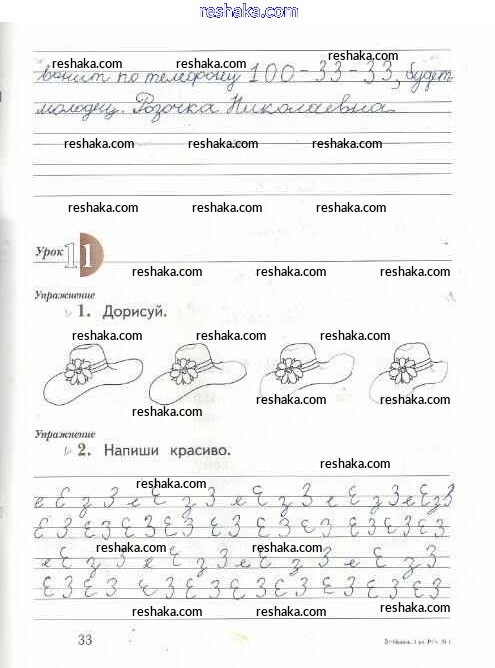 www.reshaka.com
reshaka.com reshaka.com
вонит по телефону 100-33-33, будет
reshaka.com reshaka.com reshaka.com
молодец. Розочка Николаевна.
reshaka.com reshaka.com reshaka.com
reshaka.com reshaka.com reshaka.com
Урок 11
reshaka.com reshaka.com reshaka.com
Упражнение
1. Дорисуй.
reshaka.com reshaka.com reshaka.com
reshaka.com reshaka.com reshaka.com
Упражнение
2. Напиши красиво.
reshaka.com
reshaka.com
е Е з З е Е з З е Е з З е Е з З е Е з З
reshaka.com reshaka.com
Е З Е З Е З Е З Е З Е З Е З Е З Е З
reshaka.com reshaka.com
е Е з З е Е з З е Е з З е Е з З
reshaka.com
Е З Е З Е З Е З Е З Е З Е З Е З Е З
reshaka.com reshaka.com reshaka.com
33
www.reshaka.com